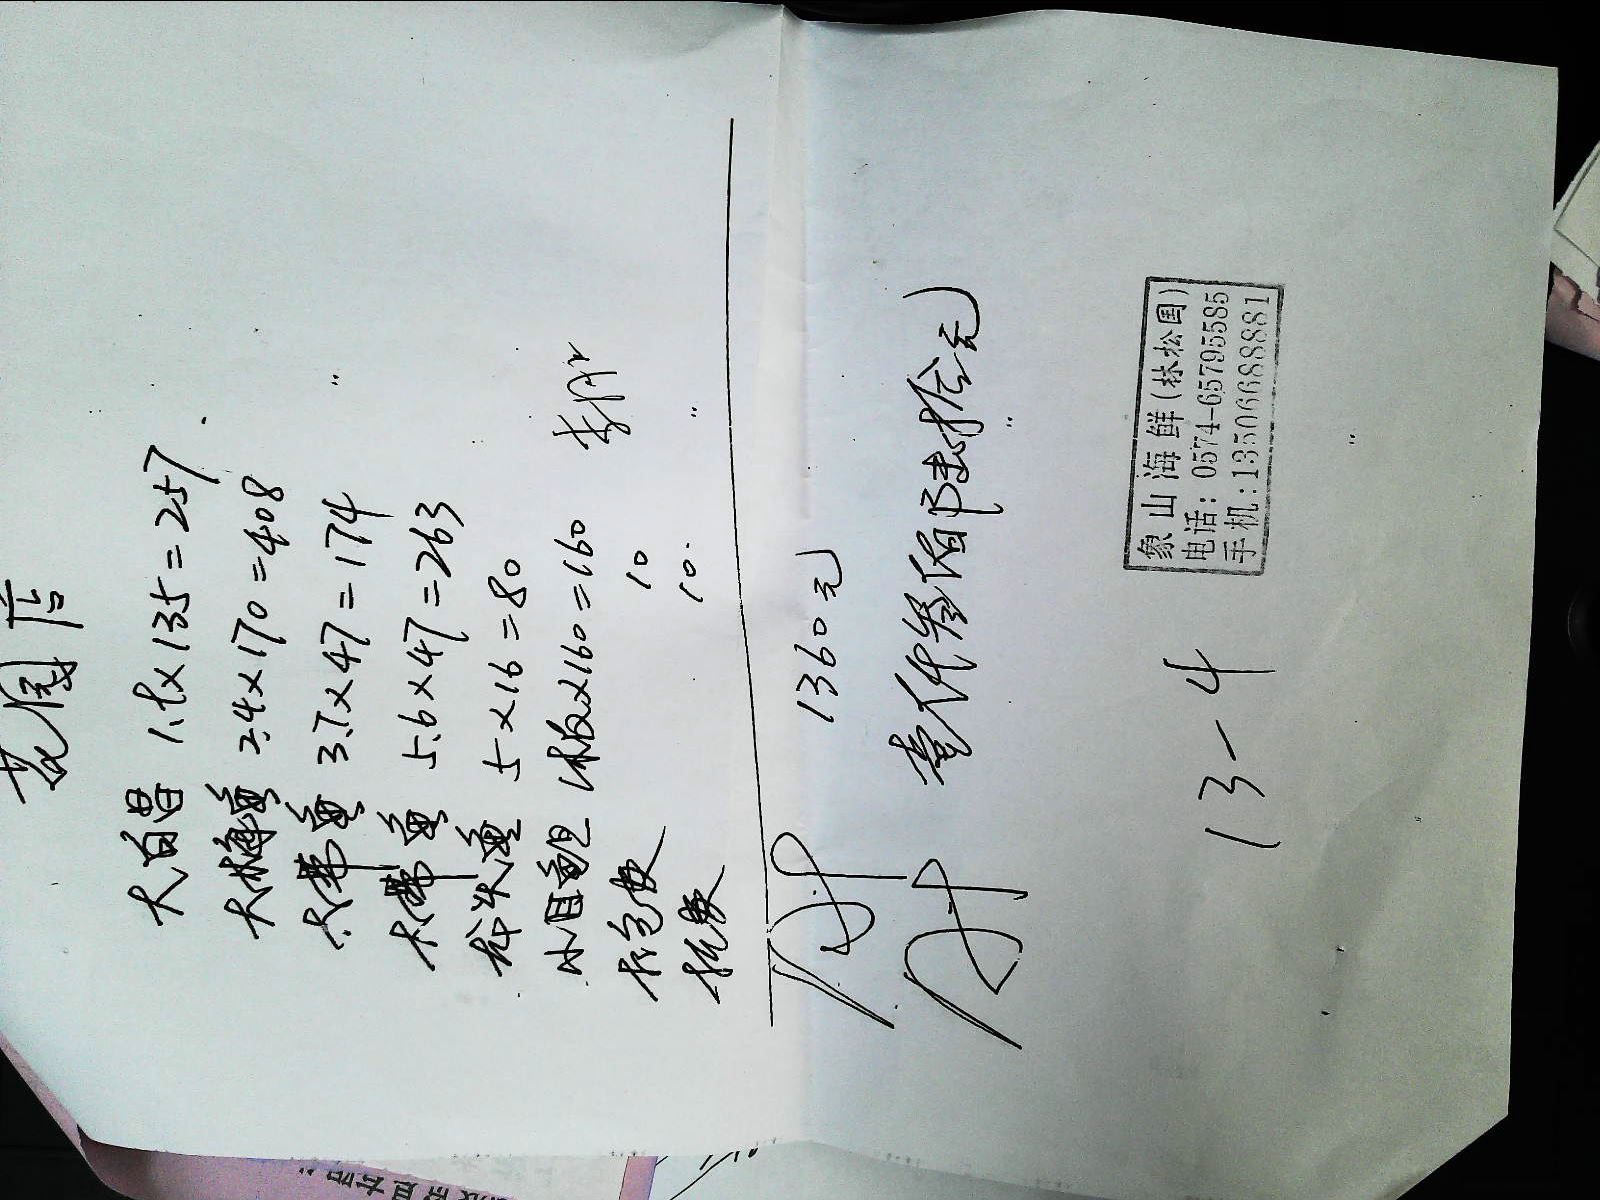 花园店
大白鲳 1.9×135=257
大梅鱼 2.4×170=408
大带鱼 3.7×47=174
大带鱼 5.6×47=263
5×16=80
小目鱼旦 1板×160=160
打包费 10
10.
合计 1360元
合计 壹仟叁佰陆拾元
13-4
象山海鲜(林松国)
电话:0574-65795585
手机:13506688881